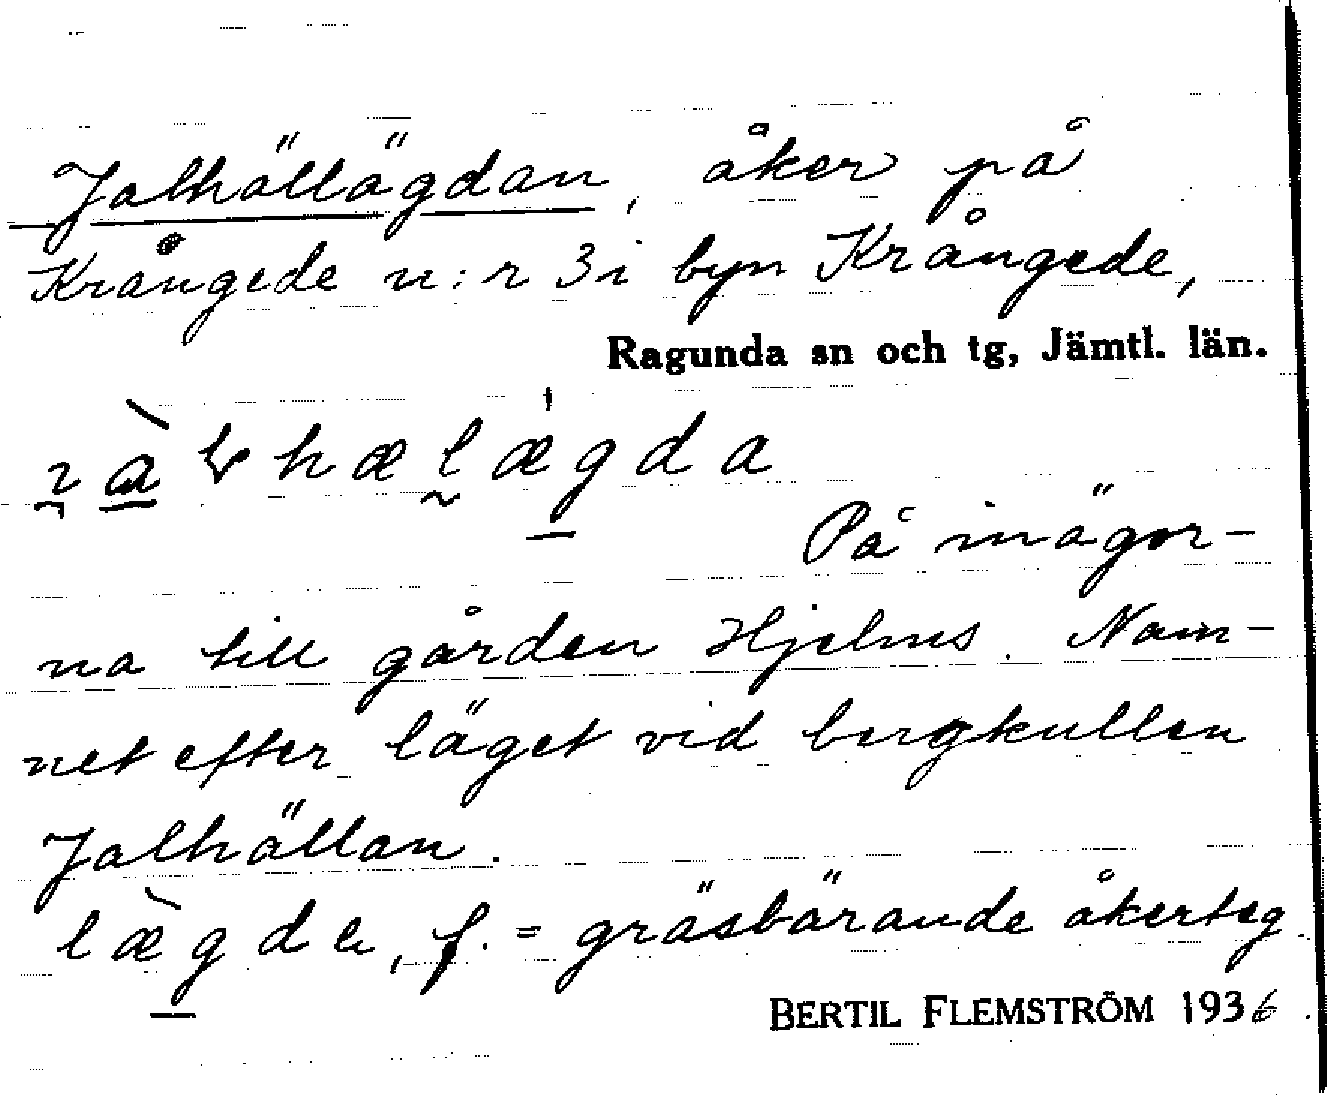 Jalhällägdan, åker på
Krångede n:r 3 i byn Krångede,
Ragunda sn och tg, Jämtl. län.
På inägor-
na till gården Hjelms. Nam-
net efter läget vid bergkullen
Jalhällan.
lægde, f. = gräsbärande åkerteg.
BERTIL FLEMSTRÖM 1936.